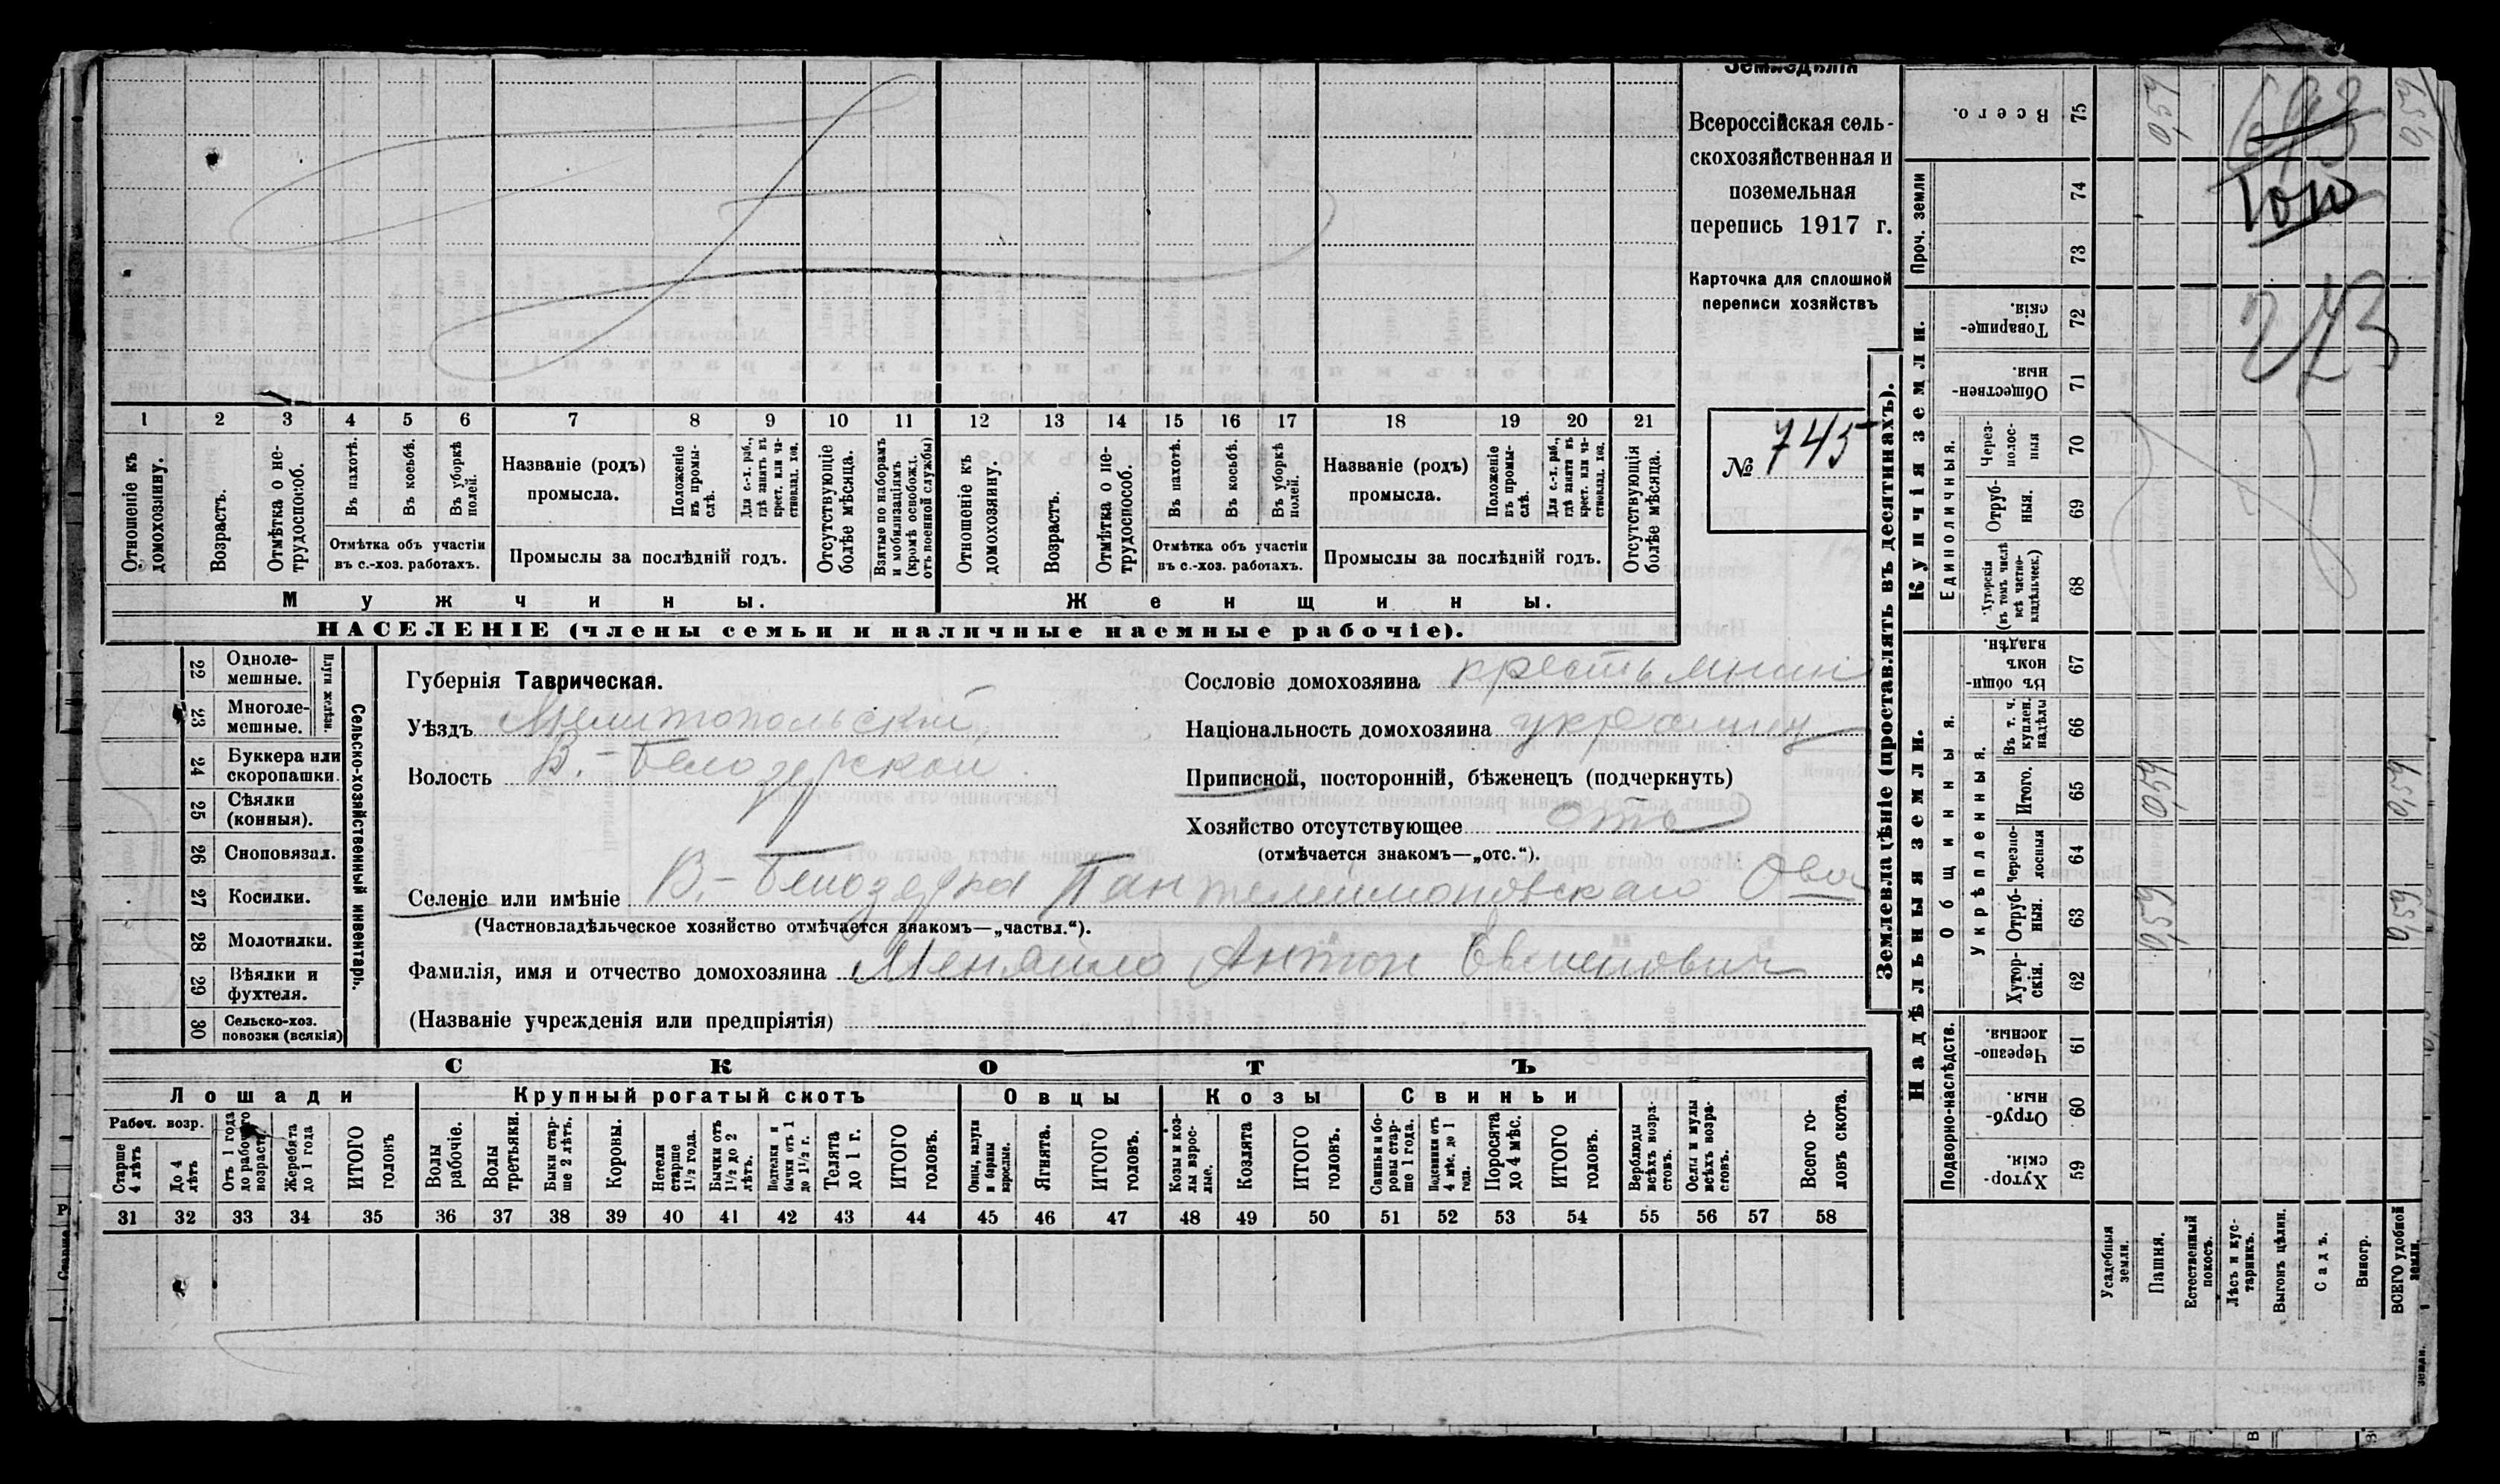 Земледѣлія
Всероссійская сель-
скохозяйственная и
поземельная
перепись 1917 г.
Карточка для сплошной
переписи хозяйствъ
№ 745
1 2 3 4 5 6 7 8 9 10 11 12 13 14 15 16 17 18 19 20 21
Отношеніе къ домохозяину.
Возрастъ.
Отмѣтка о не-трудоспособ.
Въ пахотѣ.
Въ косьбѣ.
Въ уборкѣ полей.
Отмѣтка объ участіи
въ с.-хоз. работахъ.
Названіе (родъ)
промысла.
Положеніе въ промы-слѣ.
Для с.-х. раб., гдѣ занятъ въ крест. или ча-стновлад. хоз.
Промыслы за послѣдній годъ.
Отсутствующіе болѣе мѣсяца.
Взятые по наборамъ и мобилизаціямъ (кромѣ освобожд. отъ военной службы)
Отношеніе къ домохозяину.
Возрастъ.
Отмѣтка о не-трудоспособ.
Въ пахотѣ.
Въ косьбѣ.
Въ уборкѣ полей.
Отмѣтка объ участіи
въ с.-хоз. работахъ.
Названіе (родъ)
промысла.
Положеніе въ промы-слѣ.
Для с.-х. раб., гдѣ занята въ крест. или ча-стновлад. хоз.
Промыслы за послѣдній годъ.
Отсутствующія болѣе мѣсяца.
Мужчины. Женщины.
НАСЕЛЕНІЕ (члены семьи и наличные наемные рабочіе).
Сельско-хозяйственный инвентарь.
Плуги желѣзн.
22 Одноле-мешные.
23 Многоле-мешные.
24 Буккера или скоропашки.
25 Сѣялки (конныя).
26 Сноповязал.
27 Косилки.
28 Молотилки.
29 Вѣялки и фухтеля.
30 Сельско-хоз. повозки (всякія)
Губернія Таврическая.
Уѣздъ Мелитопольскій,
Волость В.-Белозерской
Сословіе домохозяина крестьянин
Національность домохозяина украинец
Приписной, посторонній, бѣженецъ (подчеркнуть)
Хозяйство отсутствующее отс
(отмѣчается знакомъ—„отс.“).
Селеніе или имѣніе В.-Белозерка Пантелеимоновскаго Ова
(Частновладѣльческое хозяйство отмѣчается знакомъ—„частвл.“).
Фамилія, имя и отчество домохозяина Меняйло Антон Евменович
(Названіе учрежденія или предпріятія)
СКОТЪ
Лошади Крупный рогатый скотъ Овцы Козы Свиньи
Рабоч. возр.
Старше 4 лѣтъ
До 4 лѣтъ
Отъ 1 года до рабочаго возраста.
Жеребята до 1 года
ИТОГО головъ
Волы рабочіе.
Волы третьяки.
Быки стар-ше 2 лѣтъ.
Коровы.
Нетели старше 1½ года.
Бычки отъ 1½ до 2 лѣтъ.
Подтелки и бычки отъ 1 до 1½ г.
Телята до 1 г.
ИТОГО головъ.
Овцы, валухи и бараны взрослые.
Ягнята.
ИТОГО головъ.
Козы и коз-лы взрос-лые.
Козлята
ИТОГО головъ.
Свиньи и бо-ровы стар-ше 1 года.
Подсвинки отъ 4 мѣс. до 1 года.
Поросята до 4 мѣс.
ИТОГО головъ.
Верблюды всѣхъ возра-стовъ.
Ослы и мулы всѣхъ возра-стовъ.
Всего го-ловъ скота.
31 32 33 34 35 36 37 38 39 40 41 42 43 44 45 46 47 48 49 50 51 52 53 54 55 56 57 58
Землевладѣніе (проставлять въ десятинахъ).
Надѣльныя земли. Купчія земли. Проч. земли
Подворно-наслѣдств.
Общинныя.
Укрѣпленныя.
Единоличныя.
Хутор-скія. 59
Отруб-ныя. 60
Черезпо-лосныя. 61
Хутор-скія. 62
Отруб-ныя. 63
Черезпо-лосныя 64
Итого. 65
Въ т. ч. куплен. надѣлы 66
Въ общин-номъ владѣн. 67
Хуторскія (въ томъ числѣ всѣ частно-владѣльческ.) 68
Отруб-ныя. 69
Через-полос-ныя 70
Обществен-ныя. 71
Товарище-скія. 72
73
74
Всего. 75
Усадебныя земли.
Пашня.
Естественный покосъ.
Лѣсъ и кус-тарникъ.
Выгонъ цѣлин.
Садъ.
Виногр.
ВСЕГО удобной земли.
693
273